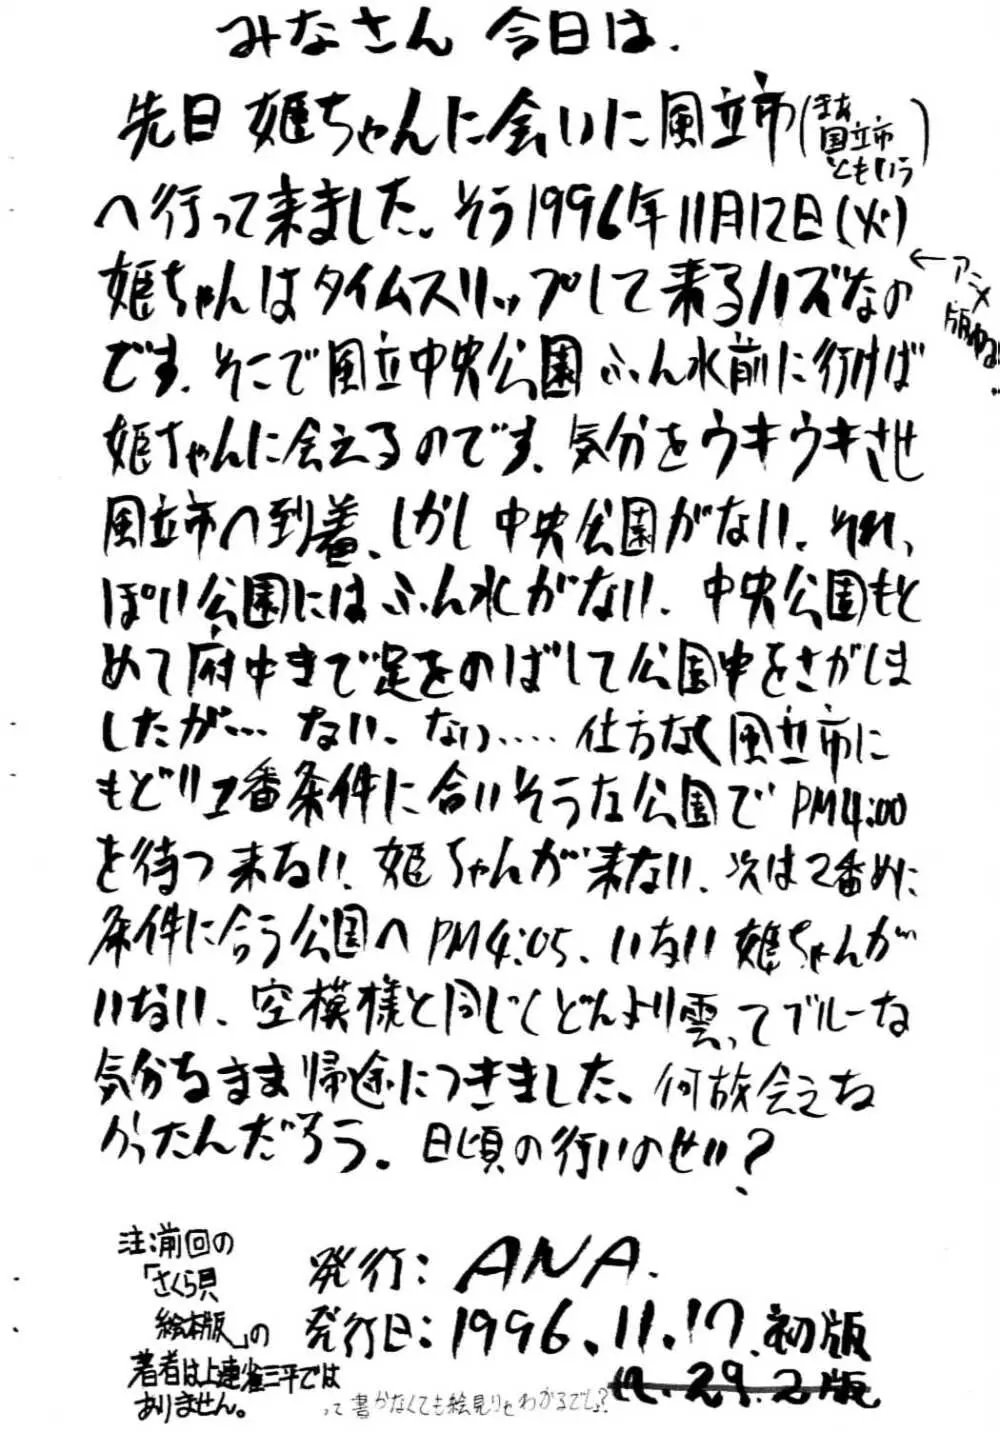 みなさん 今日は.
先日 姫ちゃんに会いに風立市(まあ国立市ともいう)
へ行って来ました。そう1996年11月12日(火)
←アニメ版ゆる!..
姫ちゃんはタイムスリップして来るハズなの
です. そこで風立中央公園ふん水前に行けば
姫ちゃんに会えるのです. 気分をウキウキさせ
風立市へ到着、しかし中央公園がない. それ、
ぽい公園にはふん水がない. 中央公園もと
めて府中まで足をのばして公園中をさがしま
したが… ない、ない….. 仕方なく風立市に
もどり1番条件に合いそうな公園でPM4:00
を待つ 来ない. 姫ちゃんが来ない. 次は2番めに
条件に合う公園へPM4:05、いない 姫ちゃんが
いない、空模様と同じくどんより雲ってブルーな
気分なまま帰途につきました。何故会えな
かったんだろう。日頃の行いのせい?
注:前回の
「さくら貝
絵本版」の
著者は上連雀三平では
ありません。
発行: ANA.
発行日: 1996.11.17.初版
12.29.2版
って書かなくても絵見りゃわかるでしょ?